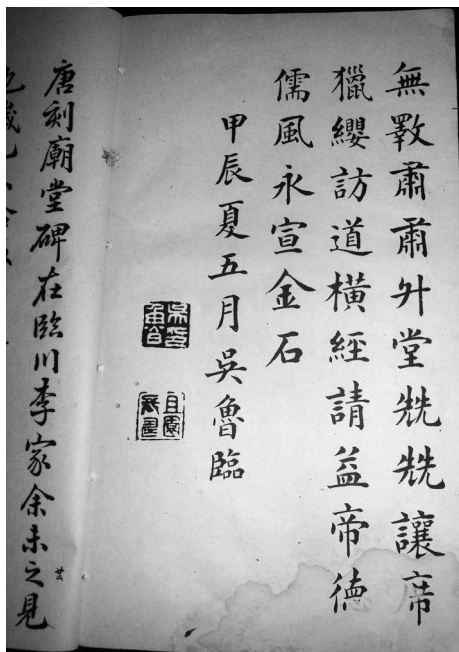 無斁肅肅升堂兟兟讓席
獵纓訪道橫經請益帝德
儒風永宣金石
甲辰夏五月吳魯臨
唐刻廟堂碑在臨川李家余未之見